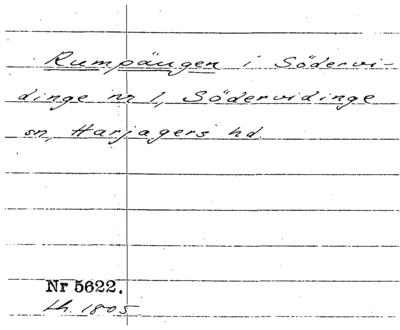 Rumpängen i Södervi-
dinge nr 1, Södervidinge
sn, Harjagers hd.
Nr 5622.
Lh. 1805